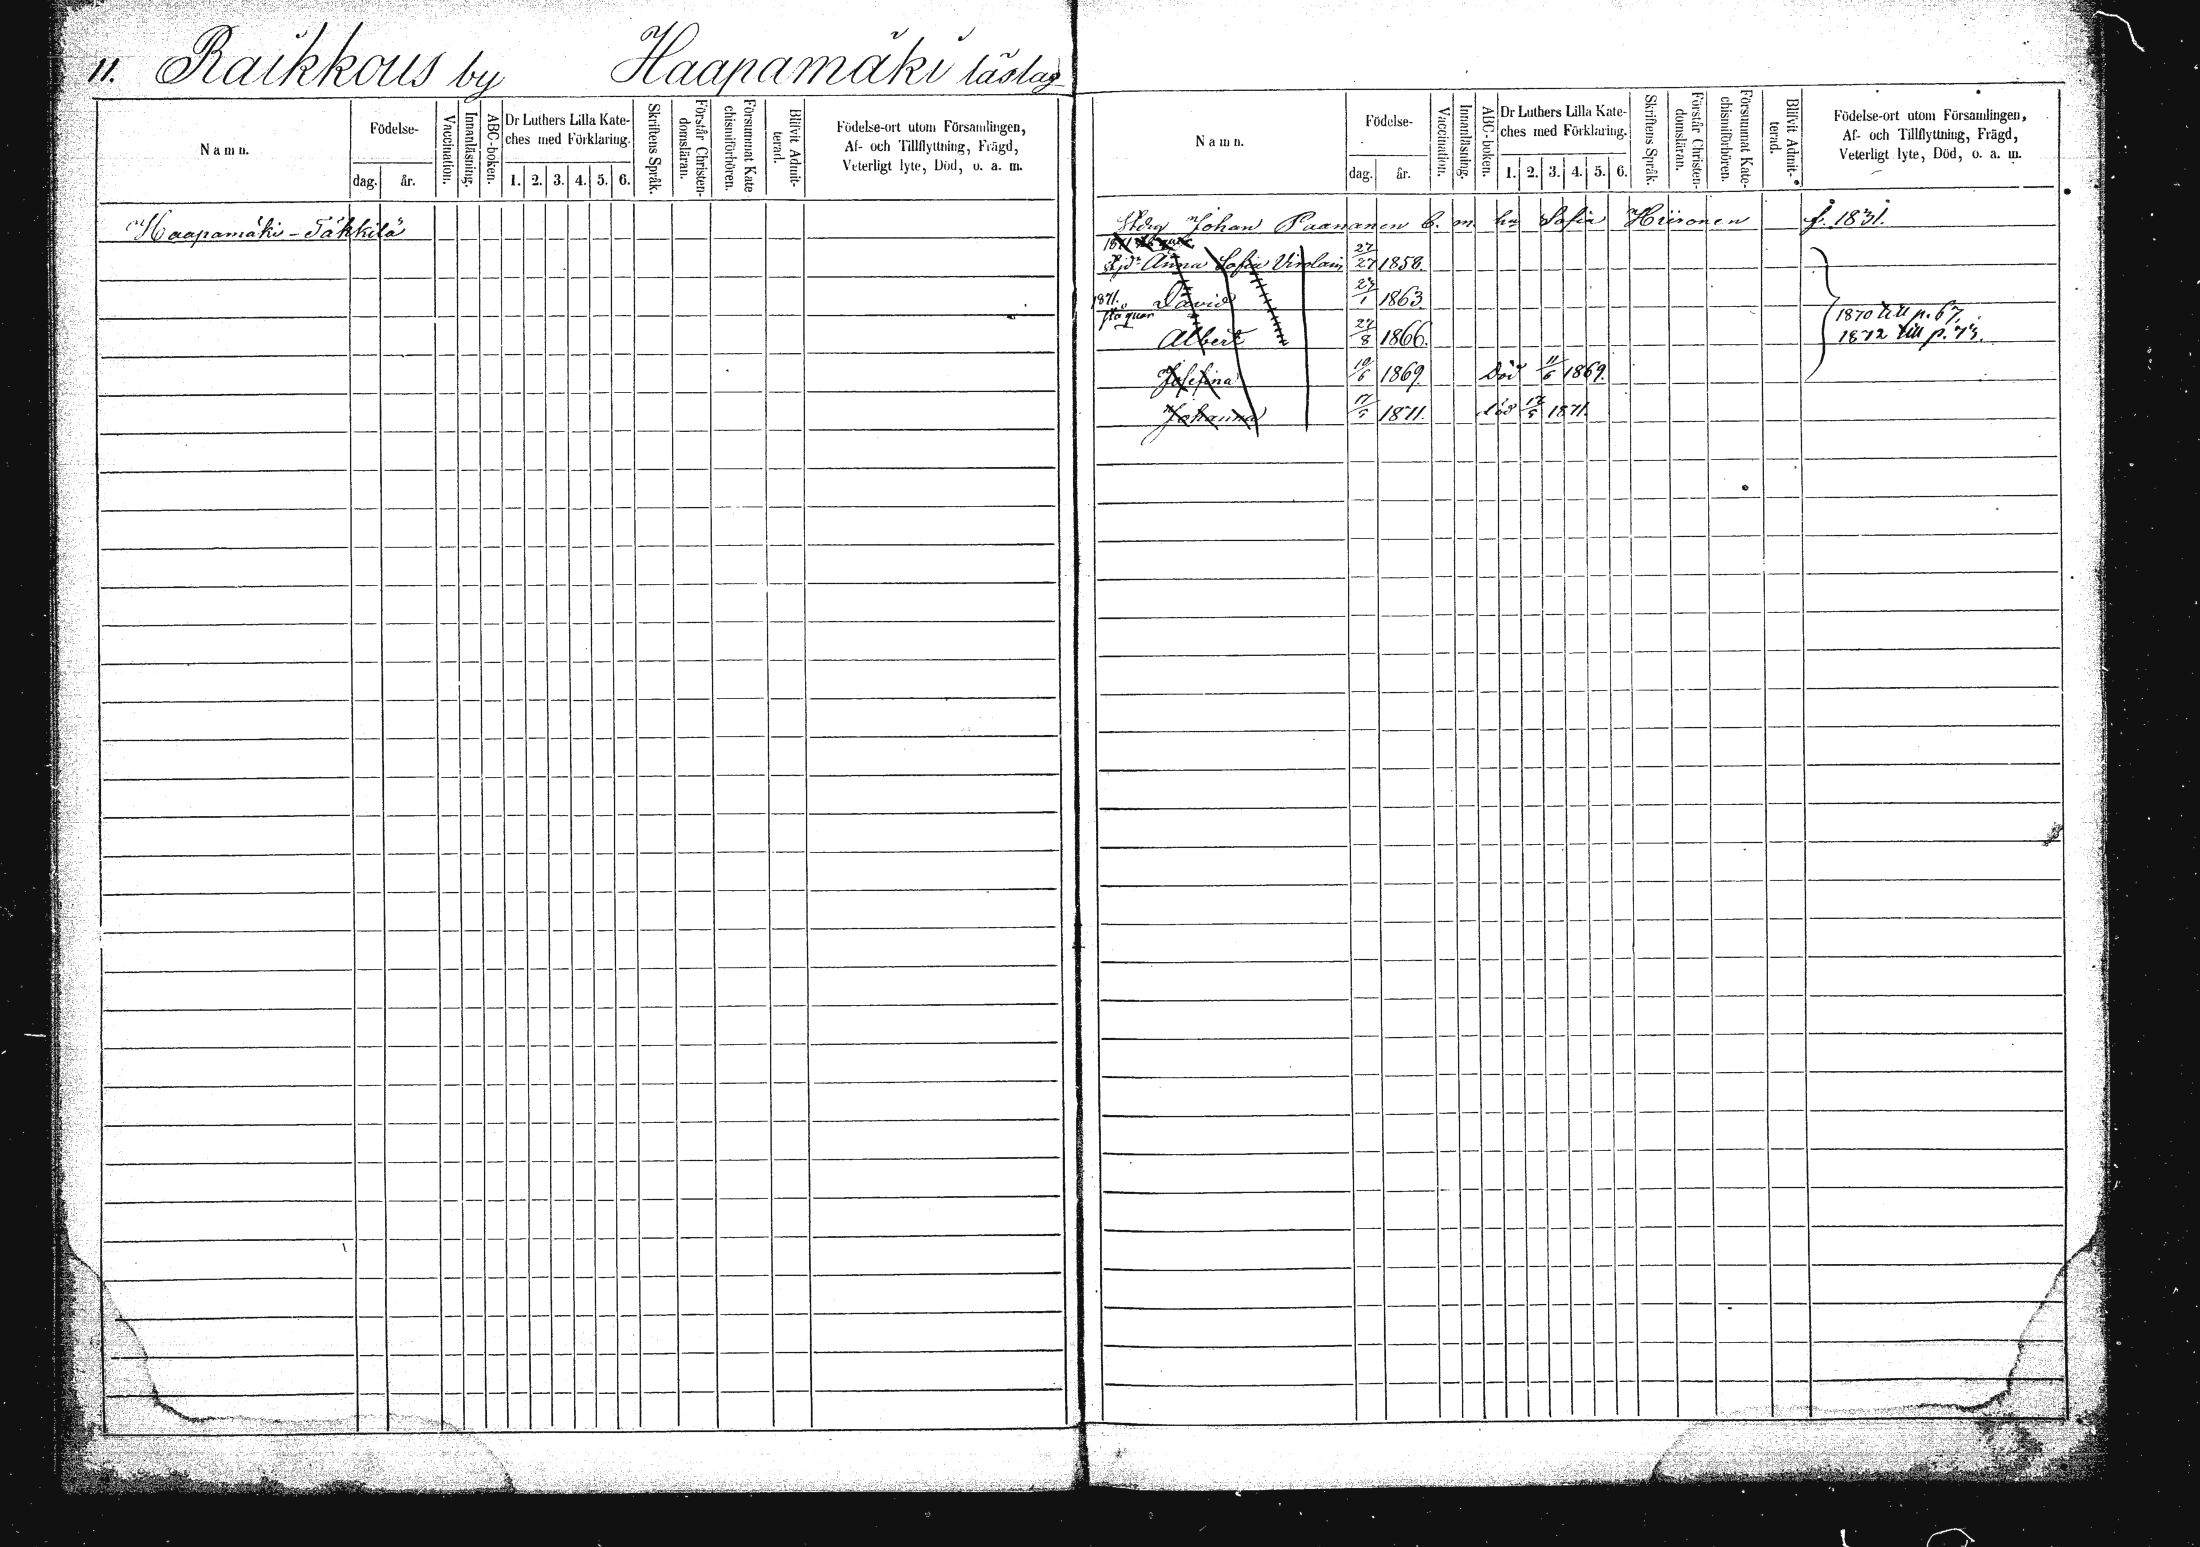 11. Raikkous by Haapamäki läslag
Namn.
Födelse-
dag. år.
Vaccination.
Innanläsning.
ABC-boken.
Dr Luthers Lilla Kate-
ches med Förklaring.
1. 2. 3. 4. 5. 6.
Skriftens Språk.
Förstår Christen-
domsläran.
Försummat Kate
chismiförhören.
Blifvit Admit-
terad.
Födelse-ort utom Församlingen,
Af- och Tillflyttning, Frägd,
Veterligt lyte, Död, o. a. m.
Haapamäki-Täkkilä
Namn.
Födelse-
dag. år.
Vaccination.
Innanläsning.
ABC-boken.
Dr Luthers Lilla Kate-
ches med Förklaring.
1. 2. 3. 4. 5. 6.
Skriftens Språk.
Förstår Christen-
domsläran.
Försummat Kate-
chismiförhören.
Blifvit Admit-
terad.
Födelse-ort utom Församlingen,
Af- och Tillflyttning, Frägd,
Veterligt lyte, Död, o. a. m.
Johan Paananen b. m. hu Sofia Hiironen f. 1831.
Anna Sofia 27/27 1858.
1871. David 1 1863
Albert 27/8 1866.
1870 till p. 67.
1872 till p. 73.
Josefina 10/6 1869. Död 11/6 1869.
Johanna 17/5 1871. död 17/5 1871.